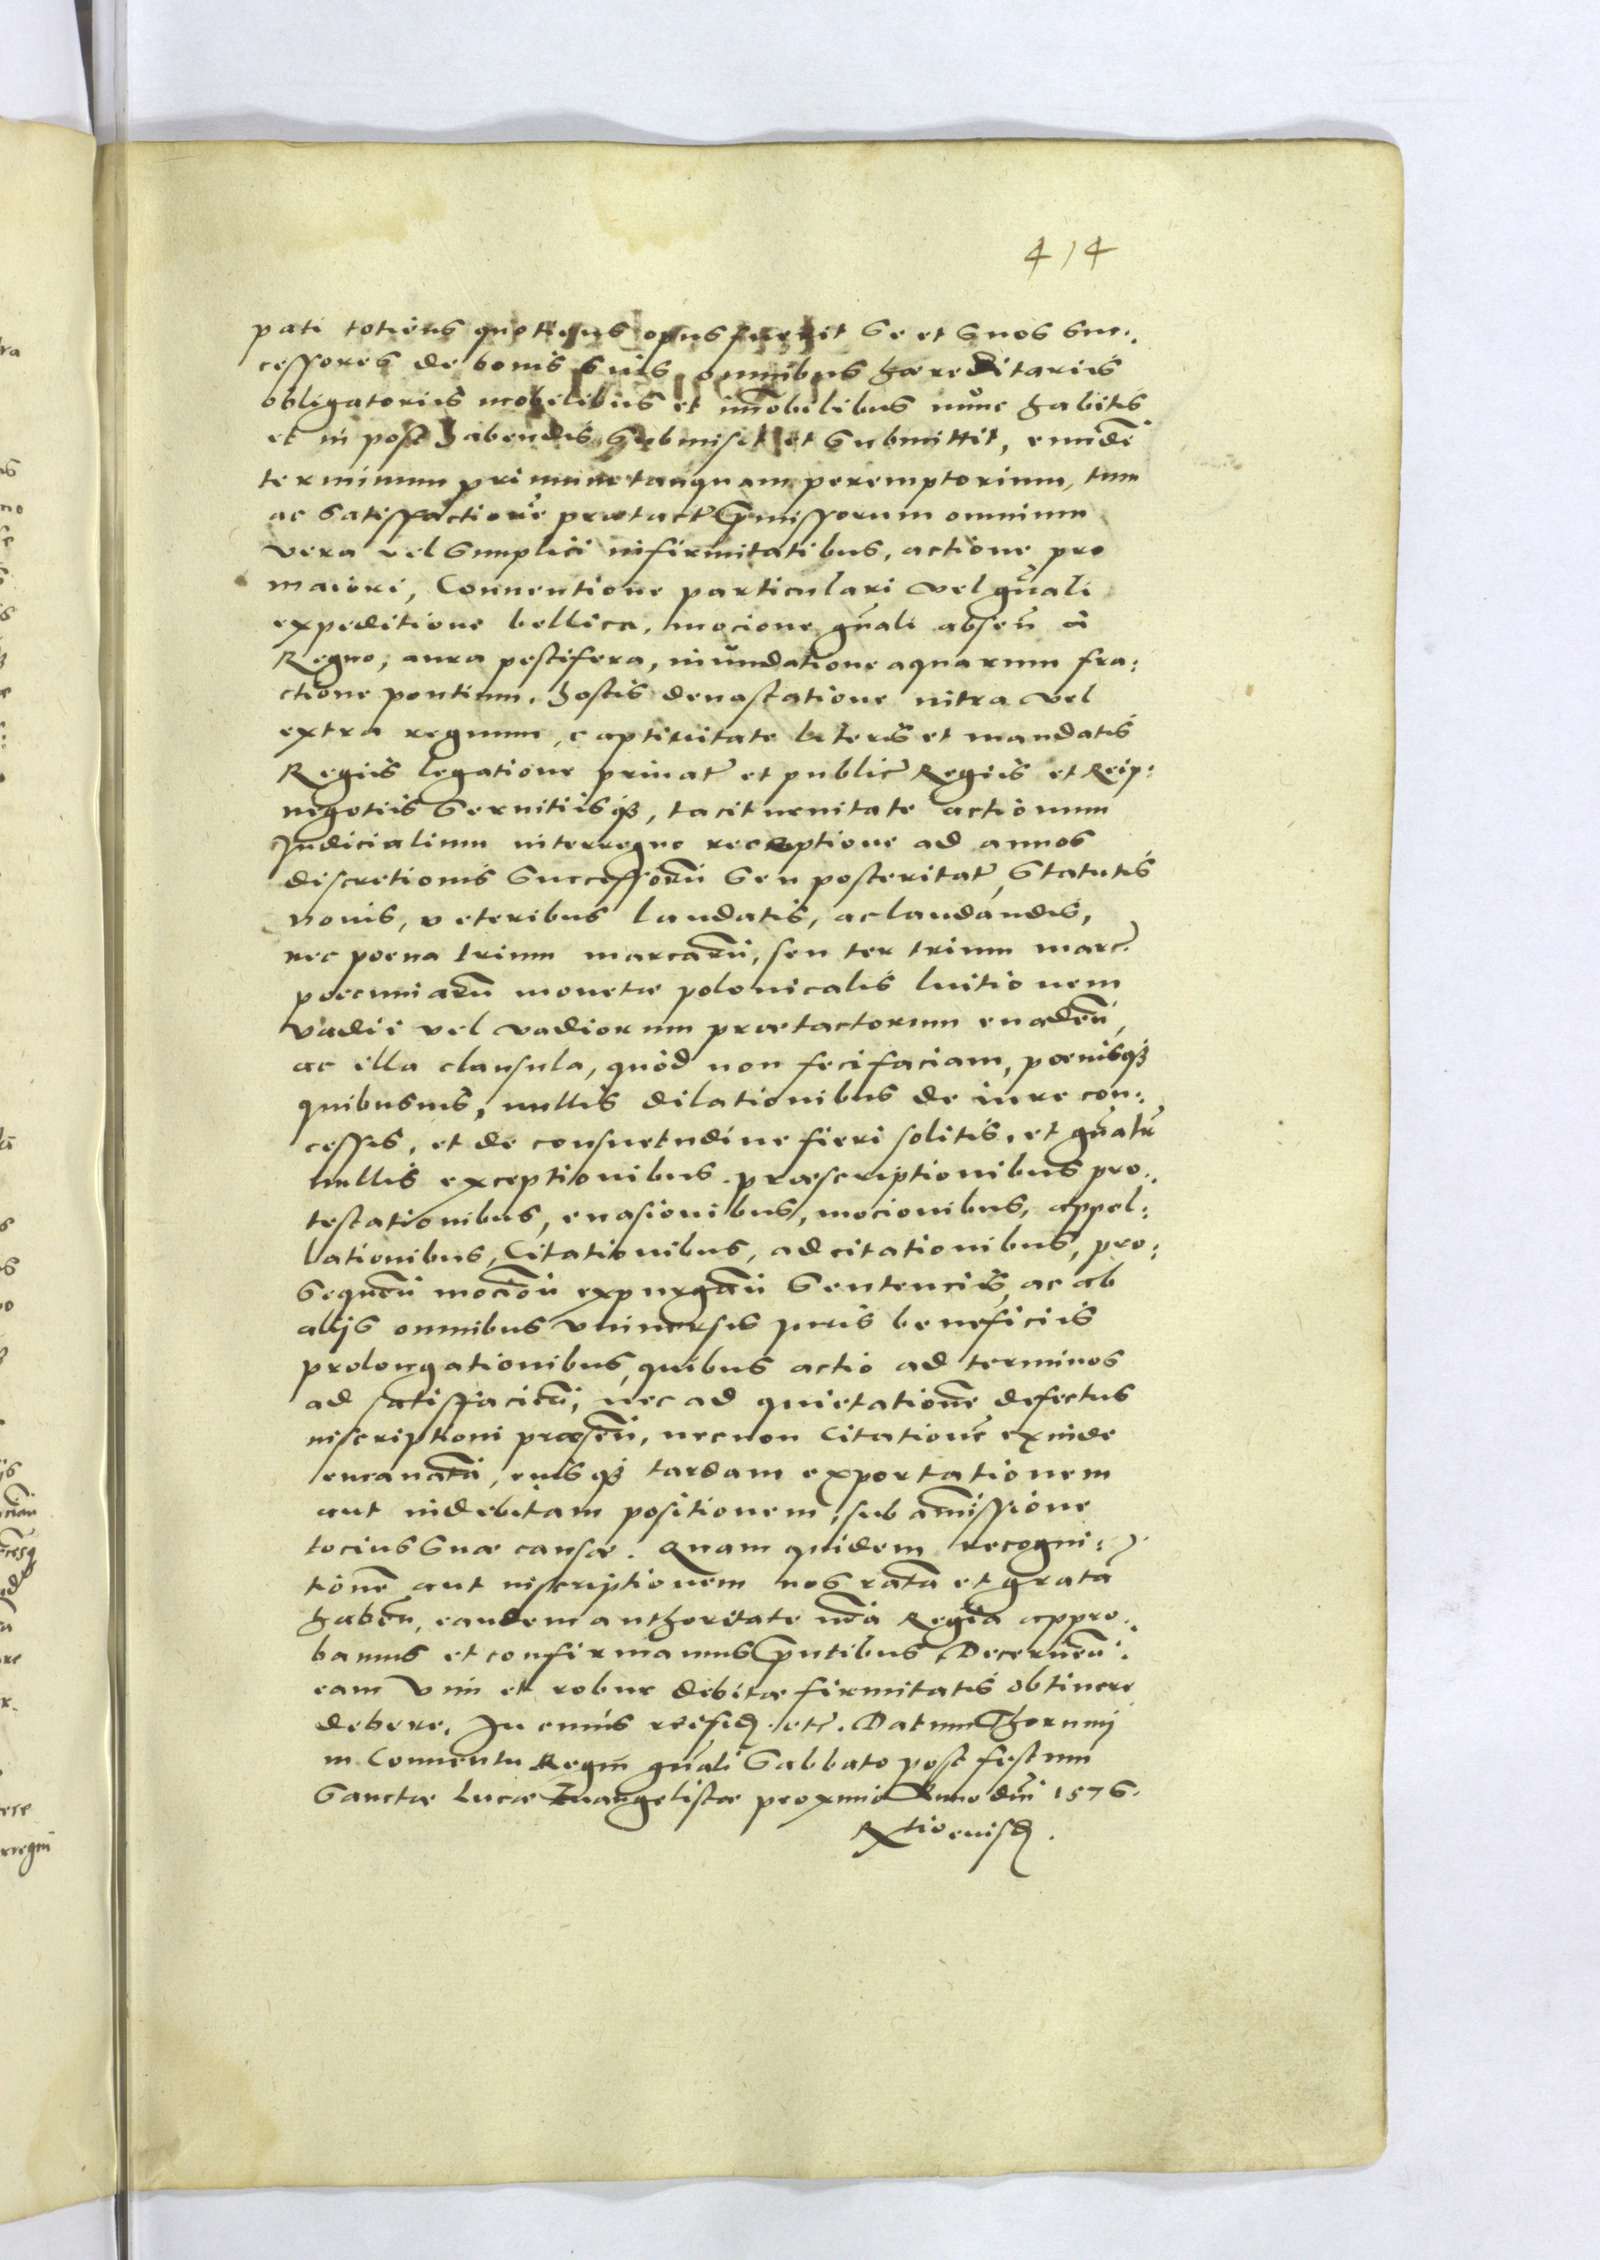 414
pati totiens quotiens opus fuerit se et suos suc:
cessores de bonis suis omnibus haereditariis
obligatoriis mobilibus et im̄obilibus nunc habitis
et in post habendis submisit et submittit, eundē
terminum primum tanquam peremptorium, tum
ac satisfactionē praetact̃ p̄missorum omnium
vera vel simplici infirmitatibus, actione pro
maiori, Conuentione particulari vel gn̄ali
expeditione bellica, mocione gn̄ali absen̄ à
Regno, aura pestifera, inundatione aquarum fra:
ctione pontium, hostis deuastatione intra vel
extra regnum, captiuitate literis et mandatis
Regiis legatione priuat̃ et public̃ Regiis et Reip:
negotiis seruitiisq3, taciturnitate actionum
Judicialium interregno receptione ad annos
discretionis successorū seu posteritat̃, Statutis
nouis, veteribus laudatis, ac laudandis,
nec poena trium marcarū, seu ter trium marc̃
poecuniarū monetae polonicalis luitionem
vadii vel vadiorum praetactorum euadeñ,
ac illa clausula, quòd non feci faciam, poenisq3
quibusuis, nullis dilationibus de iure con:
cessis, et de consuetudine fieri solitis, et gn̄atr̃
nullis exceptionibus praescriptionibus pro:
testationibus, euasionibus, mocionibus, appel:
lationibus, Citationibus, ad citationibus, pro:
sequeñ mocioñ expurgañ sentenciis, ac ab
alijs omnibus vniuersis Juris beneficiis
prolongationibus, quibus actio ad terminos
ad satisfacieñ, nec ad quietationē defectus
inscriptioni praeseñ, necnon Citationē exinde
emanatā, eiusq3 tardam exportationem
aut indebitam positionem, sub am̄issione
tocius suae causae. Quam quidem recogni:
tionē aut inscriptionem nos ratā et gratā
habeñ, eandem authoritate n̄rā Regiā appro:
bamus et confirmamus p̄ntibus, Decerneñ:
eam vim et robur debitae firmitatis obtinere
debere. In cuius rei fid. etc̃. Datum Thorunij
in Conuentu Regñ gn̄ali Sabbato post festum
Sanctae Lucae Euangelistae proximo Anno dn̄i 1576.
Rtio eiusd.